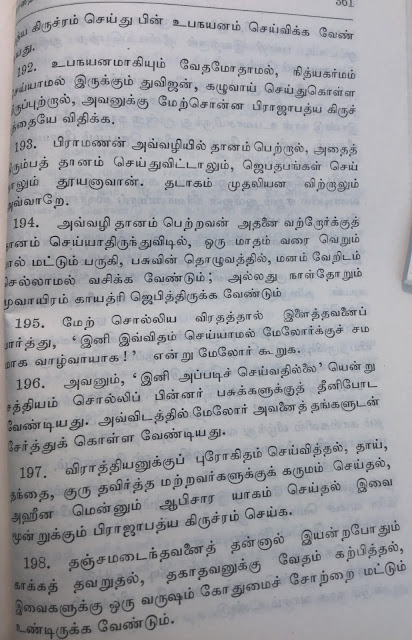 361
கிருச்ரம் செய்து பின் உபநயனம் செய்விக்க வேண்
யது.
192. உபநயனமாகியும் வேதமோதாமல், நித்யகர்மம்
செய்யாமல் இருக்கும் துவிஜன், கழுவாய் செய்துகொள்ள
அவனுக்கு மேற்சொன்ன பிராஜாபத்ய கிருச்
த்தையே விதிக்க.
193. பிராமணன் அவ்வழியில் தானம் பெற்றால், அதைத்
திரும்பத் தானம் செய்துவிட்டாலும், ஜெபதபங்கள் செய்
தாலும் தூயனாவான். தடாகம் முதலியன விற்றாலும்
அவ்வாறே.
194. அவ்வழி தானம் பெற்றவன் அதனை வற்றோர்க்குத்
தானம் செய்யாதிருந்துவிடில், ஒரு மாதம் வரை வெறும்
பால் மட்டும் பருகி, பசுவின் தொழுவத்தில், மனம் வேறிடம்
செல்லாமல் வசிக்க வேண்டும்; அல்லது நாள்தோறும்
மூவாயிரம் காயத்ரி ஜெபித்திருக்க வேண்டும்
195. மேற் சொல்லிய விரதத்தால் இளைத்தவனைப்
பார்த்து, 'இனி இவ்விதம் செய்யாமல் மேலோர்க்குச் சம
மாக வாழ்வாயாக!' என்று மேலோர் கூறுக.
196. அவனும், 'இனி அப்படிச் செய்வதில்லை' யென்று
சத்தியம் சொல்லிப் பின்னர் பசுக்களுக்குத் தீனிபோட
வேண்டியது. அவ்விடத்தில் மேலோர் அவனைத் தங்களுடன்
சேர்த்துக் கொள்ள வேண்டியது.
197. விராத்தியனுக்குப் புரோகிதம் செய்வித்தல், தாய்,
தந்தை, குரு தவிர்த்த மற்றவர்களுக்குக் கருமம் செய்தல்,
அஹீன மென்னும் ஆபிசார யாகம் செய்தல் இவை
மூன்றுக்கும் பிராஜாபத்ய கிருச்ரம் செய்க.
198. தஞ்சமடைந்தவனைத் தன்னால் இயன்றபோதும்
காக்கத் தவறுதல், தகாதவனுக்கு வேதம் கற்பித்தல்,
இவைகளுக்கு ஒரு வருஷம் கோதுமைச் சோற்றை மட்டும்
உண்டிருக்க வேண்டும்.